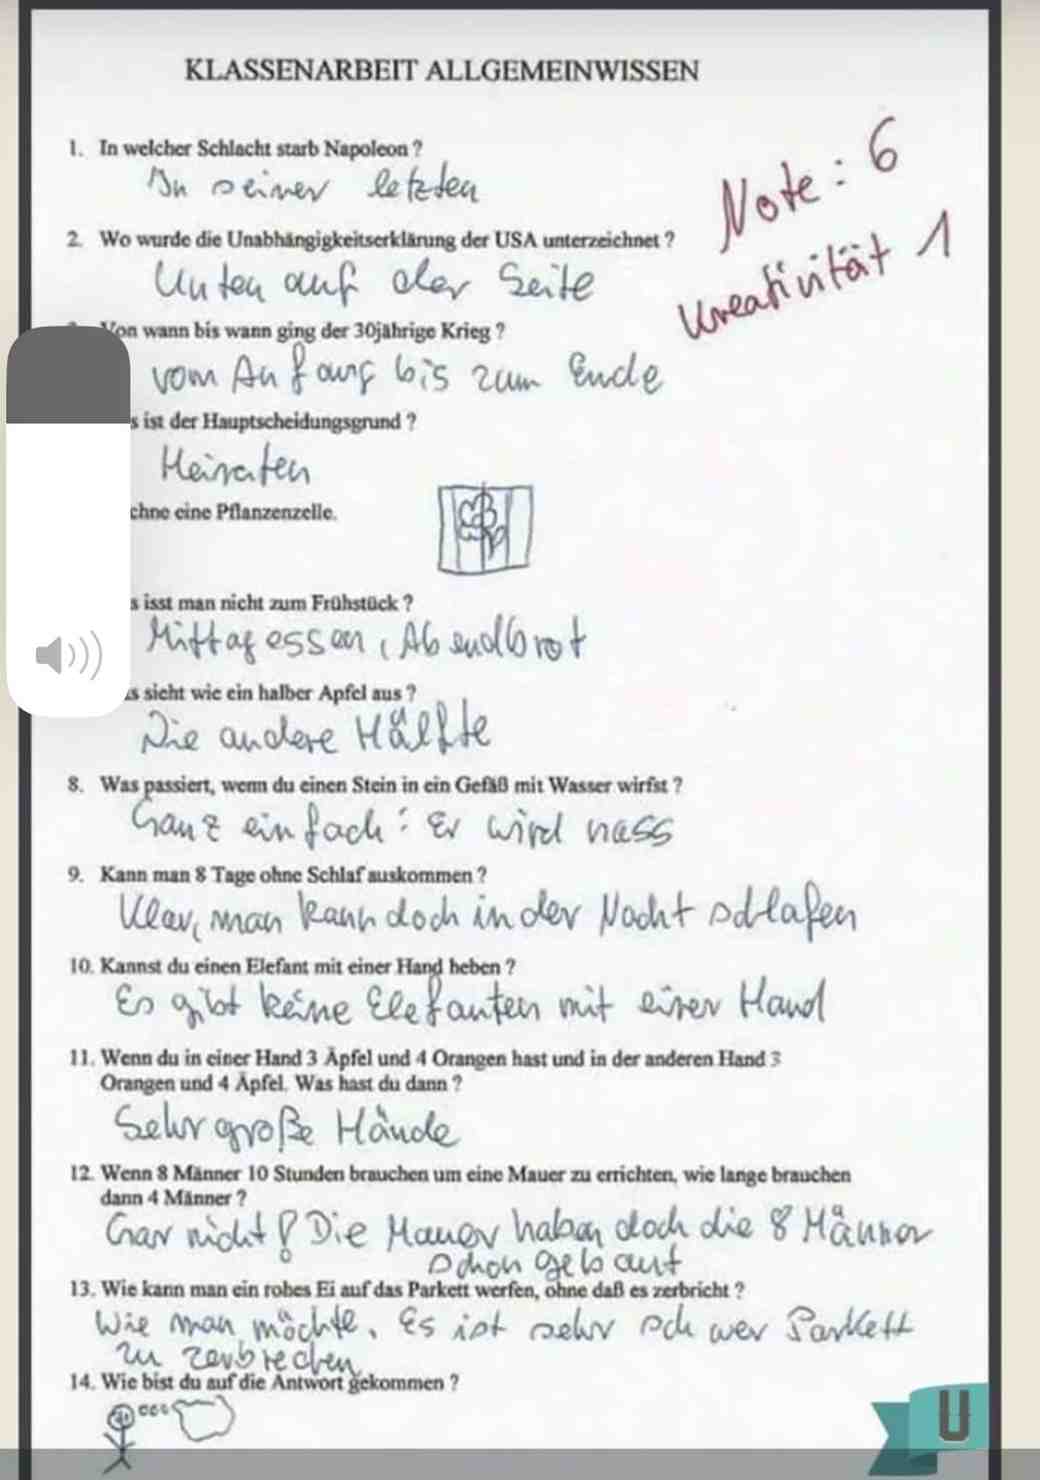 KLASSENARBEIT ALLGEMEINWISSEN
Note: 6
Kreativität 1
1. In welcher Schlacht starb Napoleon ?
In seiner letzten
2. Wo wurde die Unabhängigkeitserklärung der USA unterzeichnet ?
Unten auf der Seite
Von wann bis wann ging der 30jährige Krieg ?
vom Anfang bis zum Ende
s ist der Hauptscheidungsgrund ?
Heiraten
chne eine Pflanzenzelle.
s isst man nicht zum Frühstück ?
Mittagessen, Abendbrot
s sieht wie ein halber Apfel aus ?
Die andere Hälfte
8. Was passiert, wenn du einen Stein in ein Gefäß mit Wasser wirfst ?
Ganz einfach: Er wird nass
9. Kann man 8 Tage ohne Schlaf auskommen ?
Klar, man kann doch in der Nacht schlafen
10. Kannst du einen Elefant mit einer Hand heben ?
Es gibt keine Elefanten mit einer Hand
11. Wenn du in einer Hand 3 Äpfel und 4 Orangen hast und in der anderen Hand 3
Orangen und 4 Äpfel. Was hast du dann ?
Sehr große Hände
12. Wenn 8 Männer 10 Stunden brauchen um eine Mauer zu errichten, wie lange brauchen
dann 4 Männer ?
Gar nicht! Die Mauer haben doch die 8 Männer
schon gebaut
13. Wie kann man ein rohes Ei auf das Parkett werfen, ohne daß es zerbricht ?
Wie man möchte. Es ist sehr schwer Parkett
zu zerbrechen
14. Wie bist du auf die Antwort gekommen ?
U